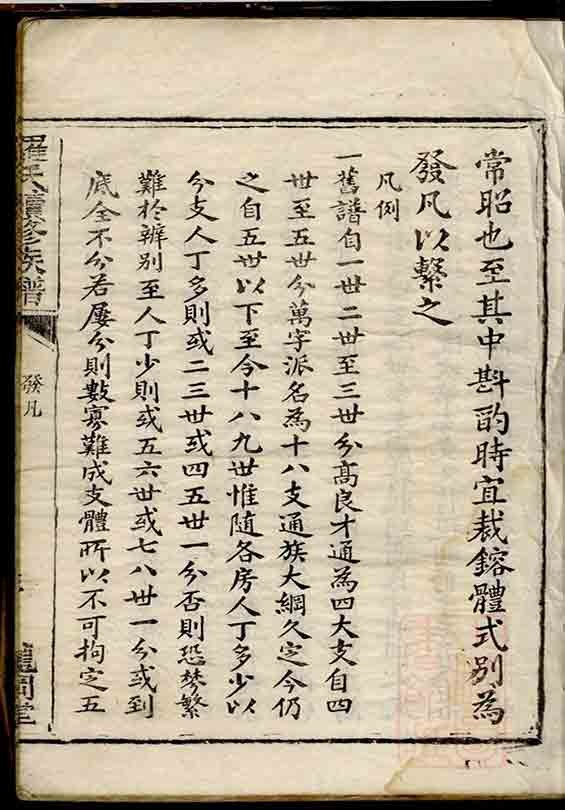 常昭也至其中斟酌時宜裁鎔體式別為
發凡以繫之
凡例
一舊譜自一世二世至三世分高良才通為四大支自四
世至五世分萬字派名為十八支通族大綱久定今仍
之自五世以下至今十八九世惟隨各房人丁多少以
分支人丁多則或二三世或四五世一分否則恐棼繁
難於辨別至人丁少則或五六世或七八世一分或到
底全不分若屢分則數寡難成支體所以不可拘定五
羅氏續修族譜
發凡